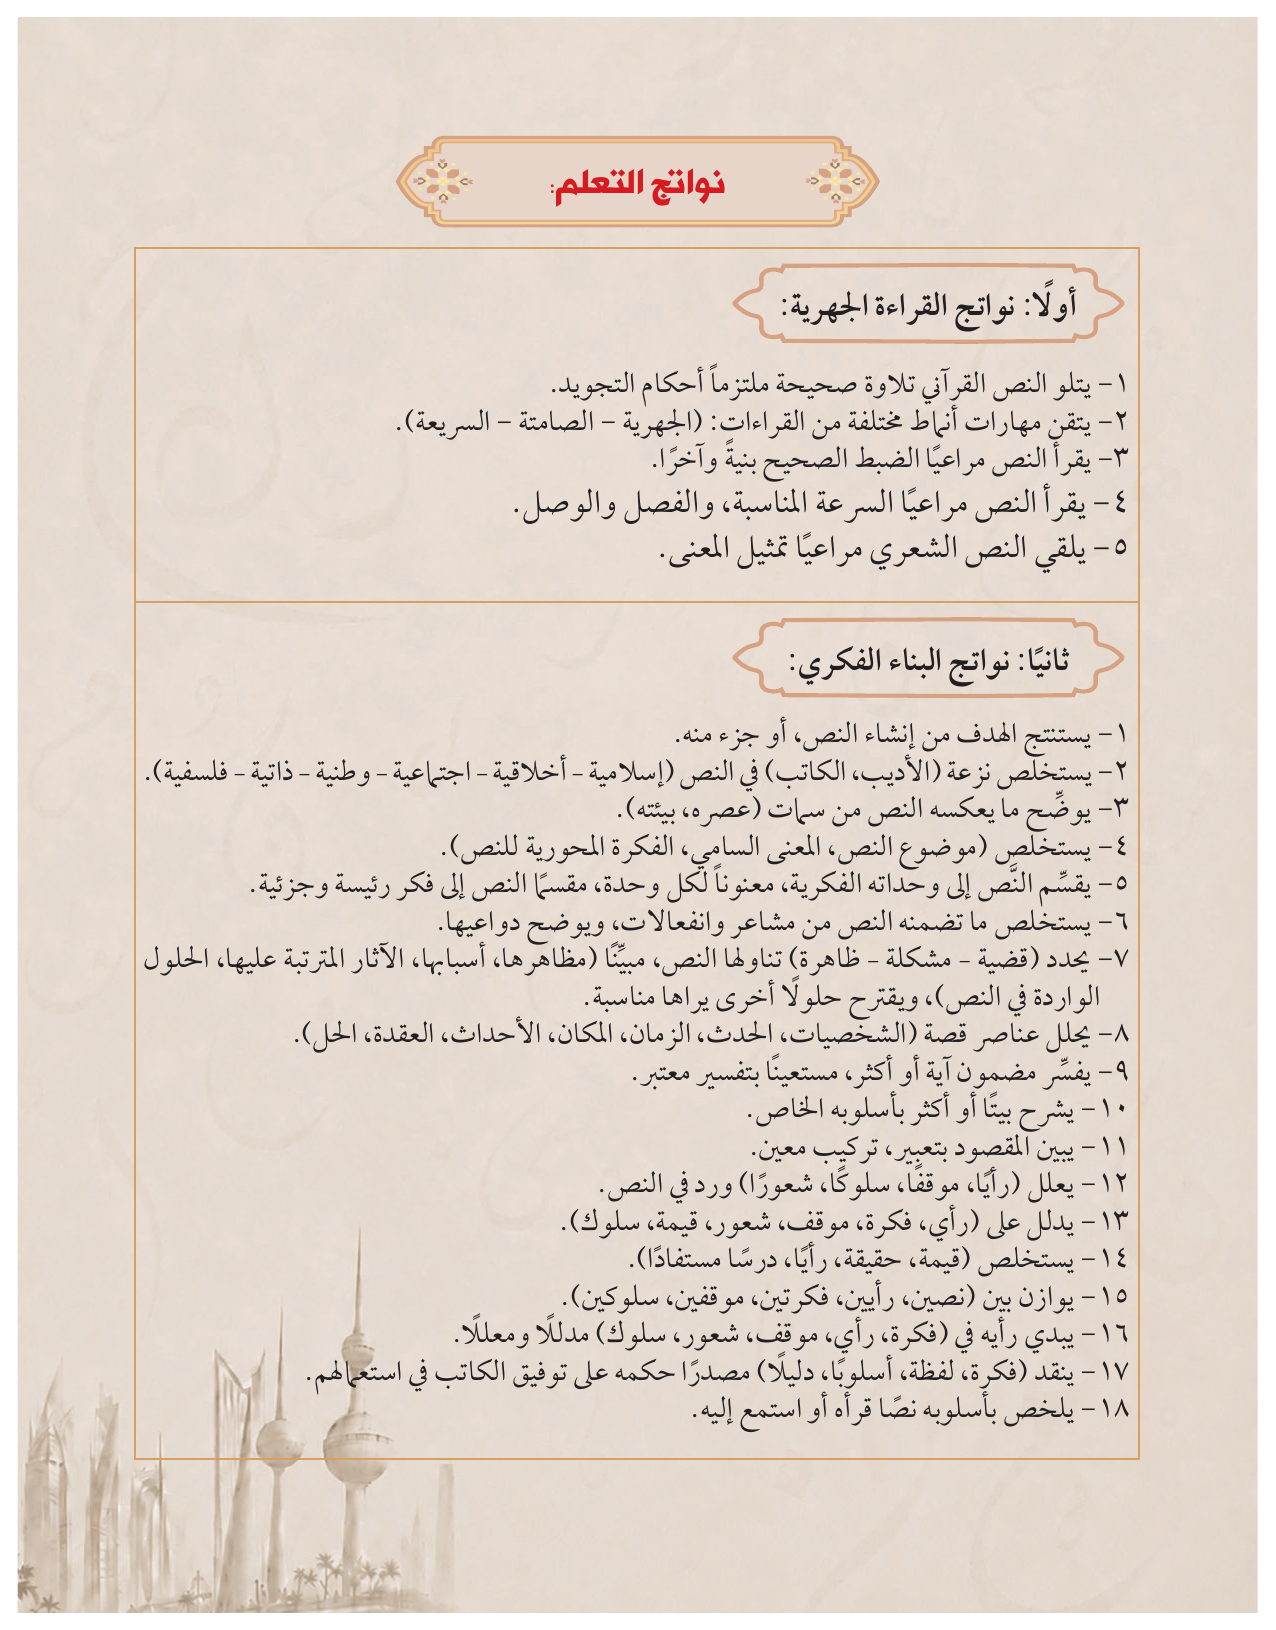 نواتج التعلم:
أولًا: نواتج القراءة الجهرية:
١- يتلو النص القرآني تلاوة صحيحة ملتزماً أحكام التجويد.
٢- يتقن مهارات أنماط مختلفة من القراءات: (الجهرية - الصامتة - السريعة).
٣- يقرأ النص مراعيًا الضبط الصحيح بنيةً وآخرًا.
٤- يقرأ النص مراعيًا السرعة المناسبة، والفصل والوصل.
٥- يلقي النص الشعري مراعيًا تمثيل المعنى.
ثانيًا: نواتج البناء الفكري:
١- يستنتج الهدف من إنشاء النص، أو جزء منه.
٢- يستخلص نزعة (الأديب، الكاتب) في النص (إسلامية - أخلاقية - اجتماعية - وطنية - ذاتية - فلسفية).
٣- يوضِّح ما يعكسه النص من سمات (عصره، بيئته).
٤- يستخلص (موضوع النص، المعنى السامي، الفكرة المحورية للنص).
٥- يقسِّم النَّص إلى وحداته الفكرية، معنوناً لكل وحدة، مقسمًا النص إلى فكر رئيسة وجزئية.
٦- يستخلص ما تضمنه النص من مشاعر وانفعالات، ويوضح دواعيها.
٧- يحدد (قضية - مشكلة - ظاهرة) تناولها النص، مبيِّنًا (مظاهرها، أسبابها، الآثار المترتبة عليها، الحلول
الواردة في النص)، ويقترح حلولًا أخرى يراها مناسبة.
٨- يحلل عناصر قصة (الشخصيات، الحدث، الزمان، المكان، الأحداث، العقدة، الحل).
٩- يفسِّر مضمون آية أو أكثر، مستعينًا بتفسير معتبر.
١٠- يشرح بيتًا أو أكثر بأسلوبه الخاص.
١١- يبين المقصود بتعبير، تركيب معين.
١٢- يعلل (رأيًا، موقفًا، سلوكًا، شعورًا) ورد في النص.
١٣- يدلل على (رأي، فكرة، موقف، شعور، قيمة، سلوك).
١٤- يستخلص (قيمة، حقيقة، رأيًا، درسًا مستفادًا).
١٥- يوازن بين (نصين، رأيين، فكرتين، موقفين، سلوكين).
١٦- يبدي رأيه في (فكرة، رأي، موقف، شعور، سلوك) مدللًا ومعللًا.
١٧- ينقد (فكرة، لفظة، أسلوبًا، دليلًا) مصدرًا حكمه على توفيق الكاتب في استعمالهم.
١٨- يلخص بأسلوبه نصًا قرأه أو استمع إليه.